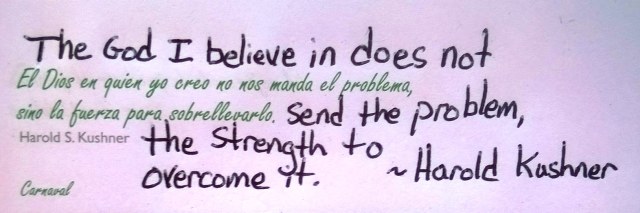 The God I believe in does not
El Dios en quien yo creo no nos manda el problema,
sino la fuerza para sobrellevarlo. Send the problem,
Harold S. Kushner the Strength to
overcome it. ~Harold Kushner
Carnaval